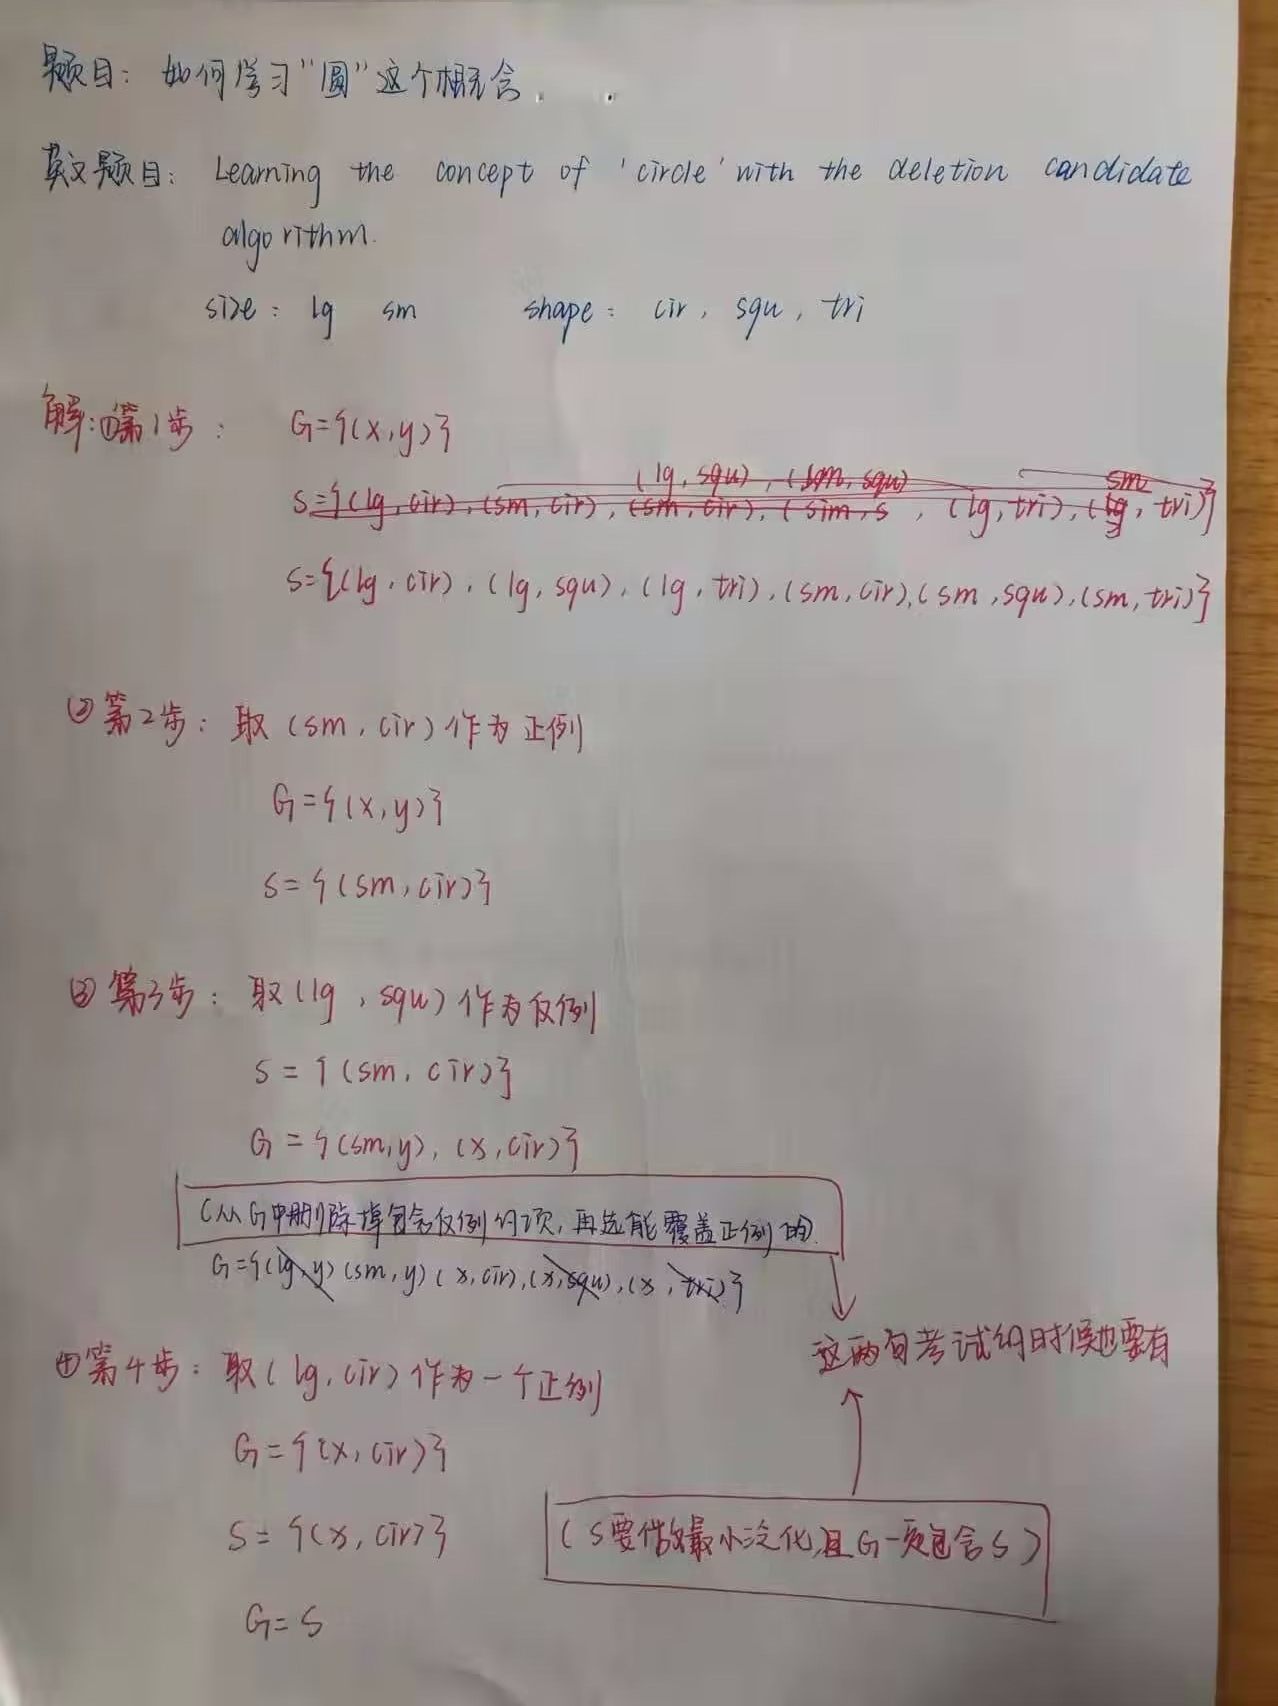 题目：如何学习“圆”这个概念.
英文题目：Learning the concept of 'circle' with the deletion candidate
algorithm.
size: lg sm shape: cir, squ, tri
解:①第1步: G={(x,y)}
(lg,squ),(sm,squ) sm
S={(lg,cir),(sm,cir),(sm,cir),(sim,s,(lg,tri),(lg,tri)}
S={(lg,cir),(lg,squ),(lg,tri),(sm,cir),(sm,squ),(sm,tri)}
②第2步: 取(sm,cir)作为正例
G={(x,y)}
S={(sm,cir)}
③第3步: 取(lg,squ)作为反例
S={(sm,cir)}
G={(sm,y),(x,cir)}
(从G中删除掉包含反例的项,再选能覆盖正例的.
G={(lg,y)(sm,y)(x,cir),(x,squ),(x,tri)}
这两句考试的时候也要有
④第4步: 取(lg,cir)作为一个正例
G={(x,cir)}
S={(x,cir)}
(S要做最小泛化,且G一定包含S)
G=S